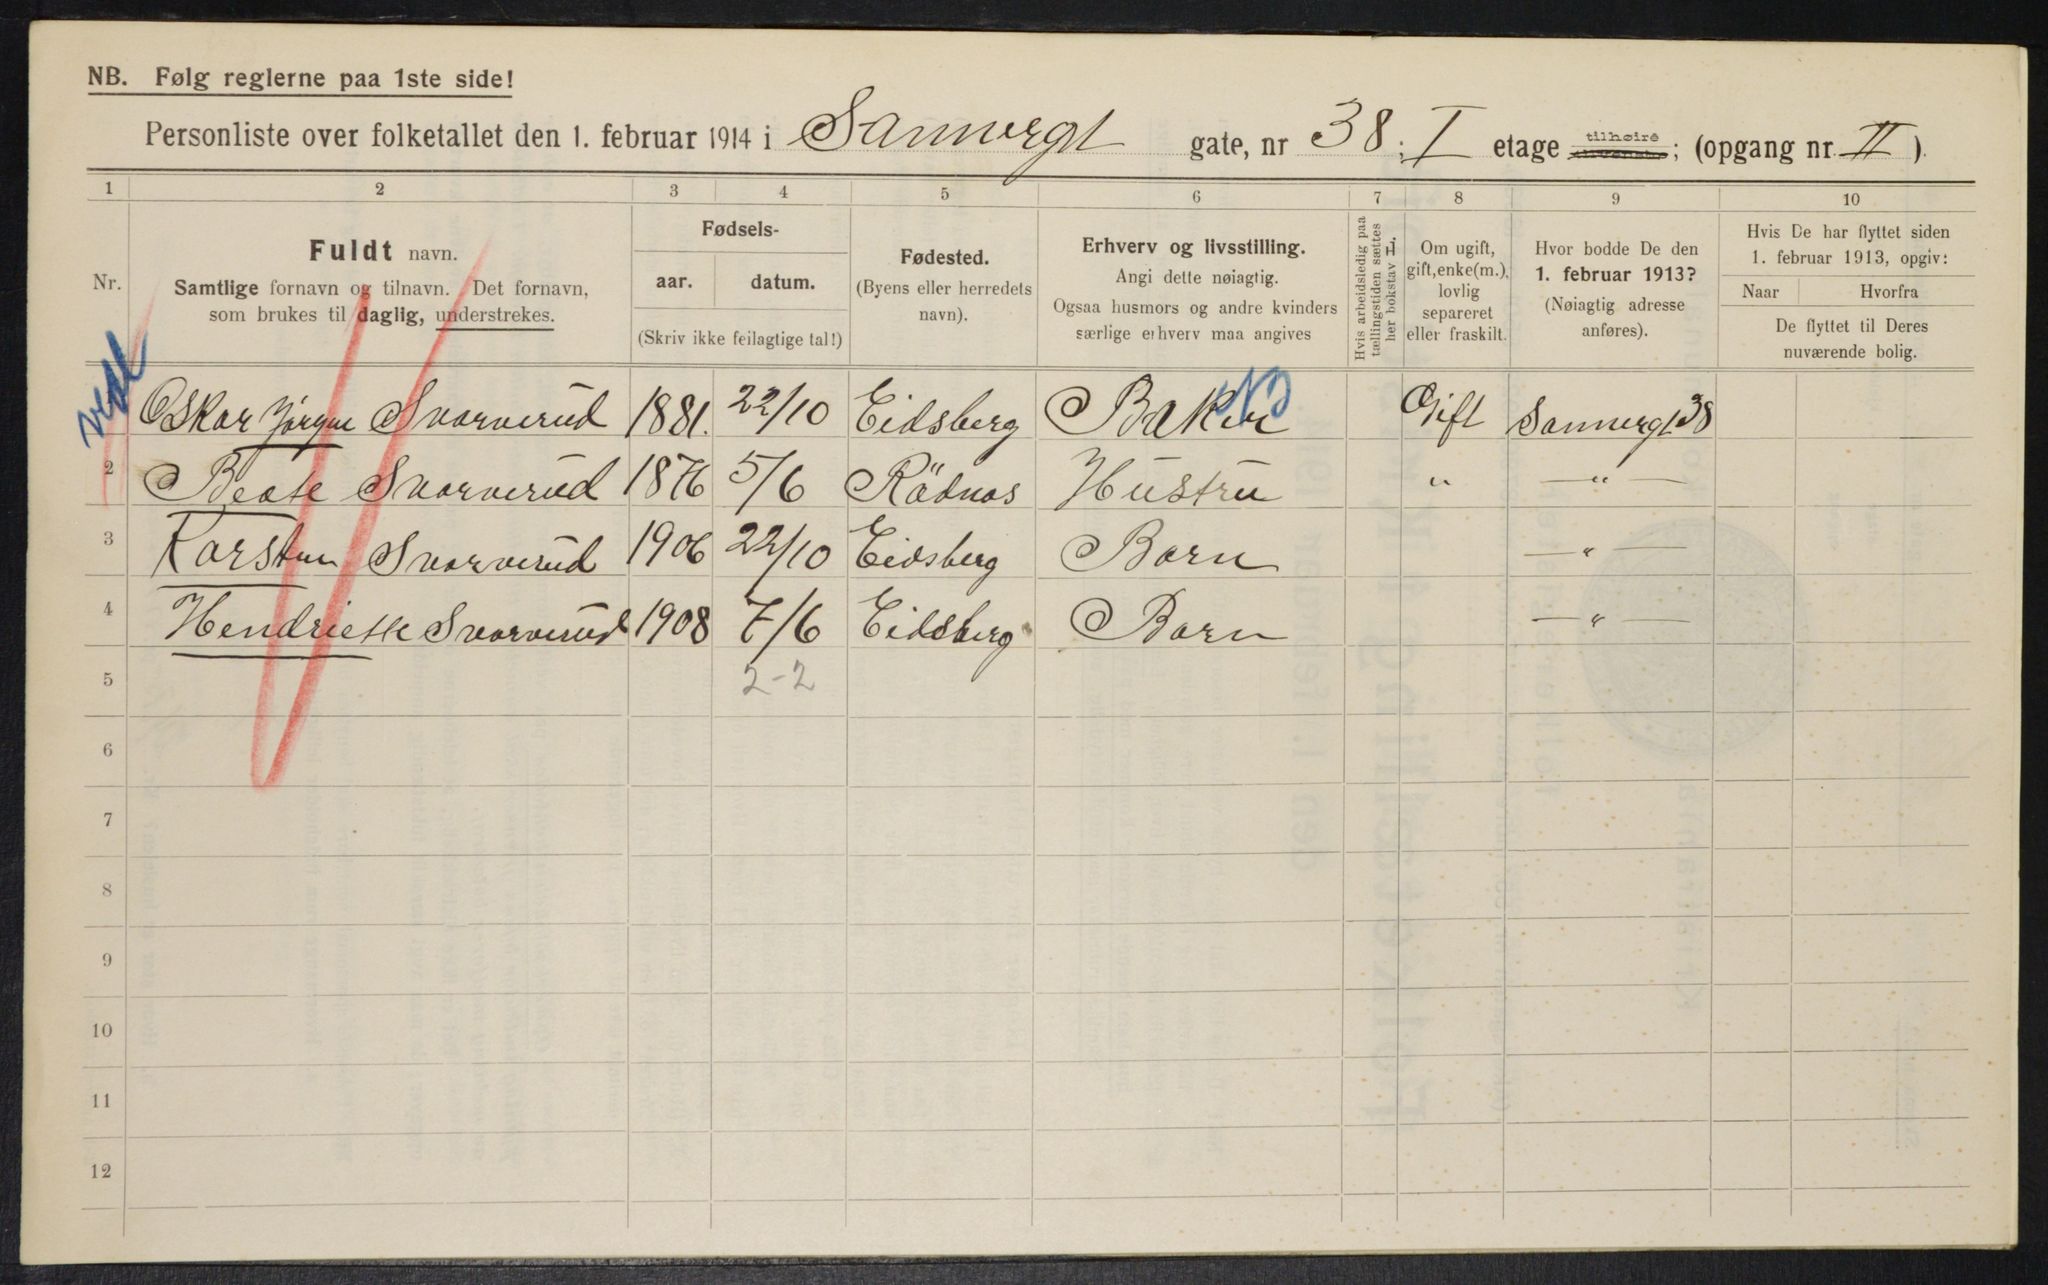 NB. Følg reglerne paa 1ste side!
Personliste over folketallet den 1. februar 1914 i Sannergt gate, nr 38; I etage tilhøire; (opgang nr. II).
1 2 3 4 5 6 7 8 9 10
Nr.
Fuldt navn.
Samtlige fornavn og tilnavn. Det fornavn,
som brukes til daglig, understrekes.
Fødsels-
aar. datum.
(Skriv ikke feilagtige tal!)
Fødested.
(Byens eller herredets
navn).
Erhverv og livsstilling.
Angi dette nøiagtig.
Ogsaa husmors og andre kvinders
særlige erhverv maa angives
Hvis arbeidsledig paa
tællingstiden sættes
her bokstav L.
Om ugift,
gift, enke(m.),
lovlig
separeret
eller fraskilt.
Hvor bodde De den
1. februar 1913?
(Nøiagtig adresse
anføres).
Hvis De har flyttet siden
1. februar 1913, opgiv:
Naar Hvorfra
De flyttet til Deres
nuværende bolig.
Oskar Jørgen Svarverud 1881. 22/10 Eidsberg Baker Gift Sannergt 38
2 Beate Svarverud 1876 5/6 Hustru " —"—
3 Karsten Svarverud 1906 22/10 Eidsberg Barn —"—
4 Hendriette Svarverud 1908 7/6 Eidsberg Barn —"—
5 2-2
6
7
8
9
10
11
12